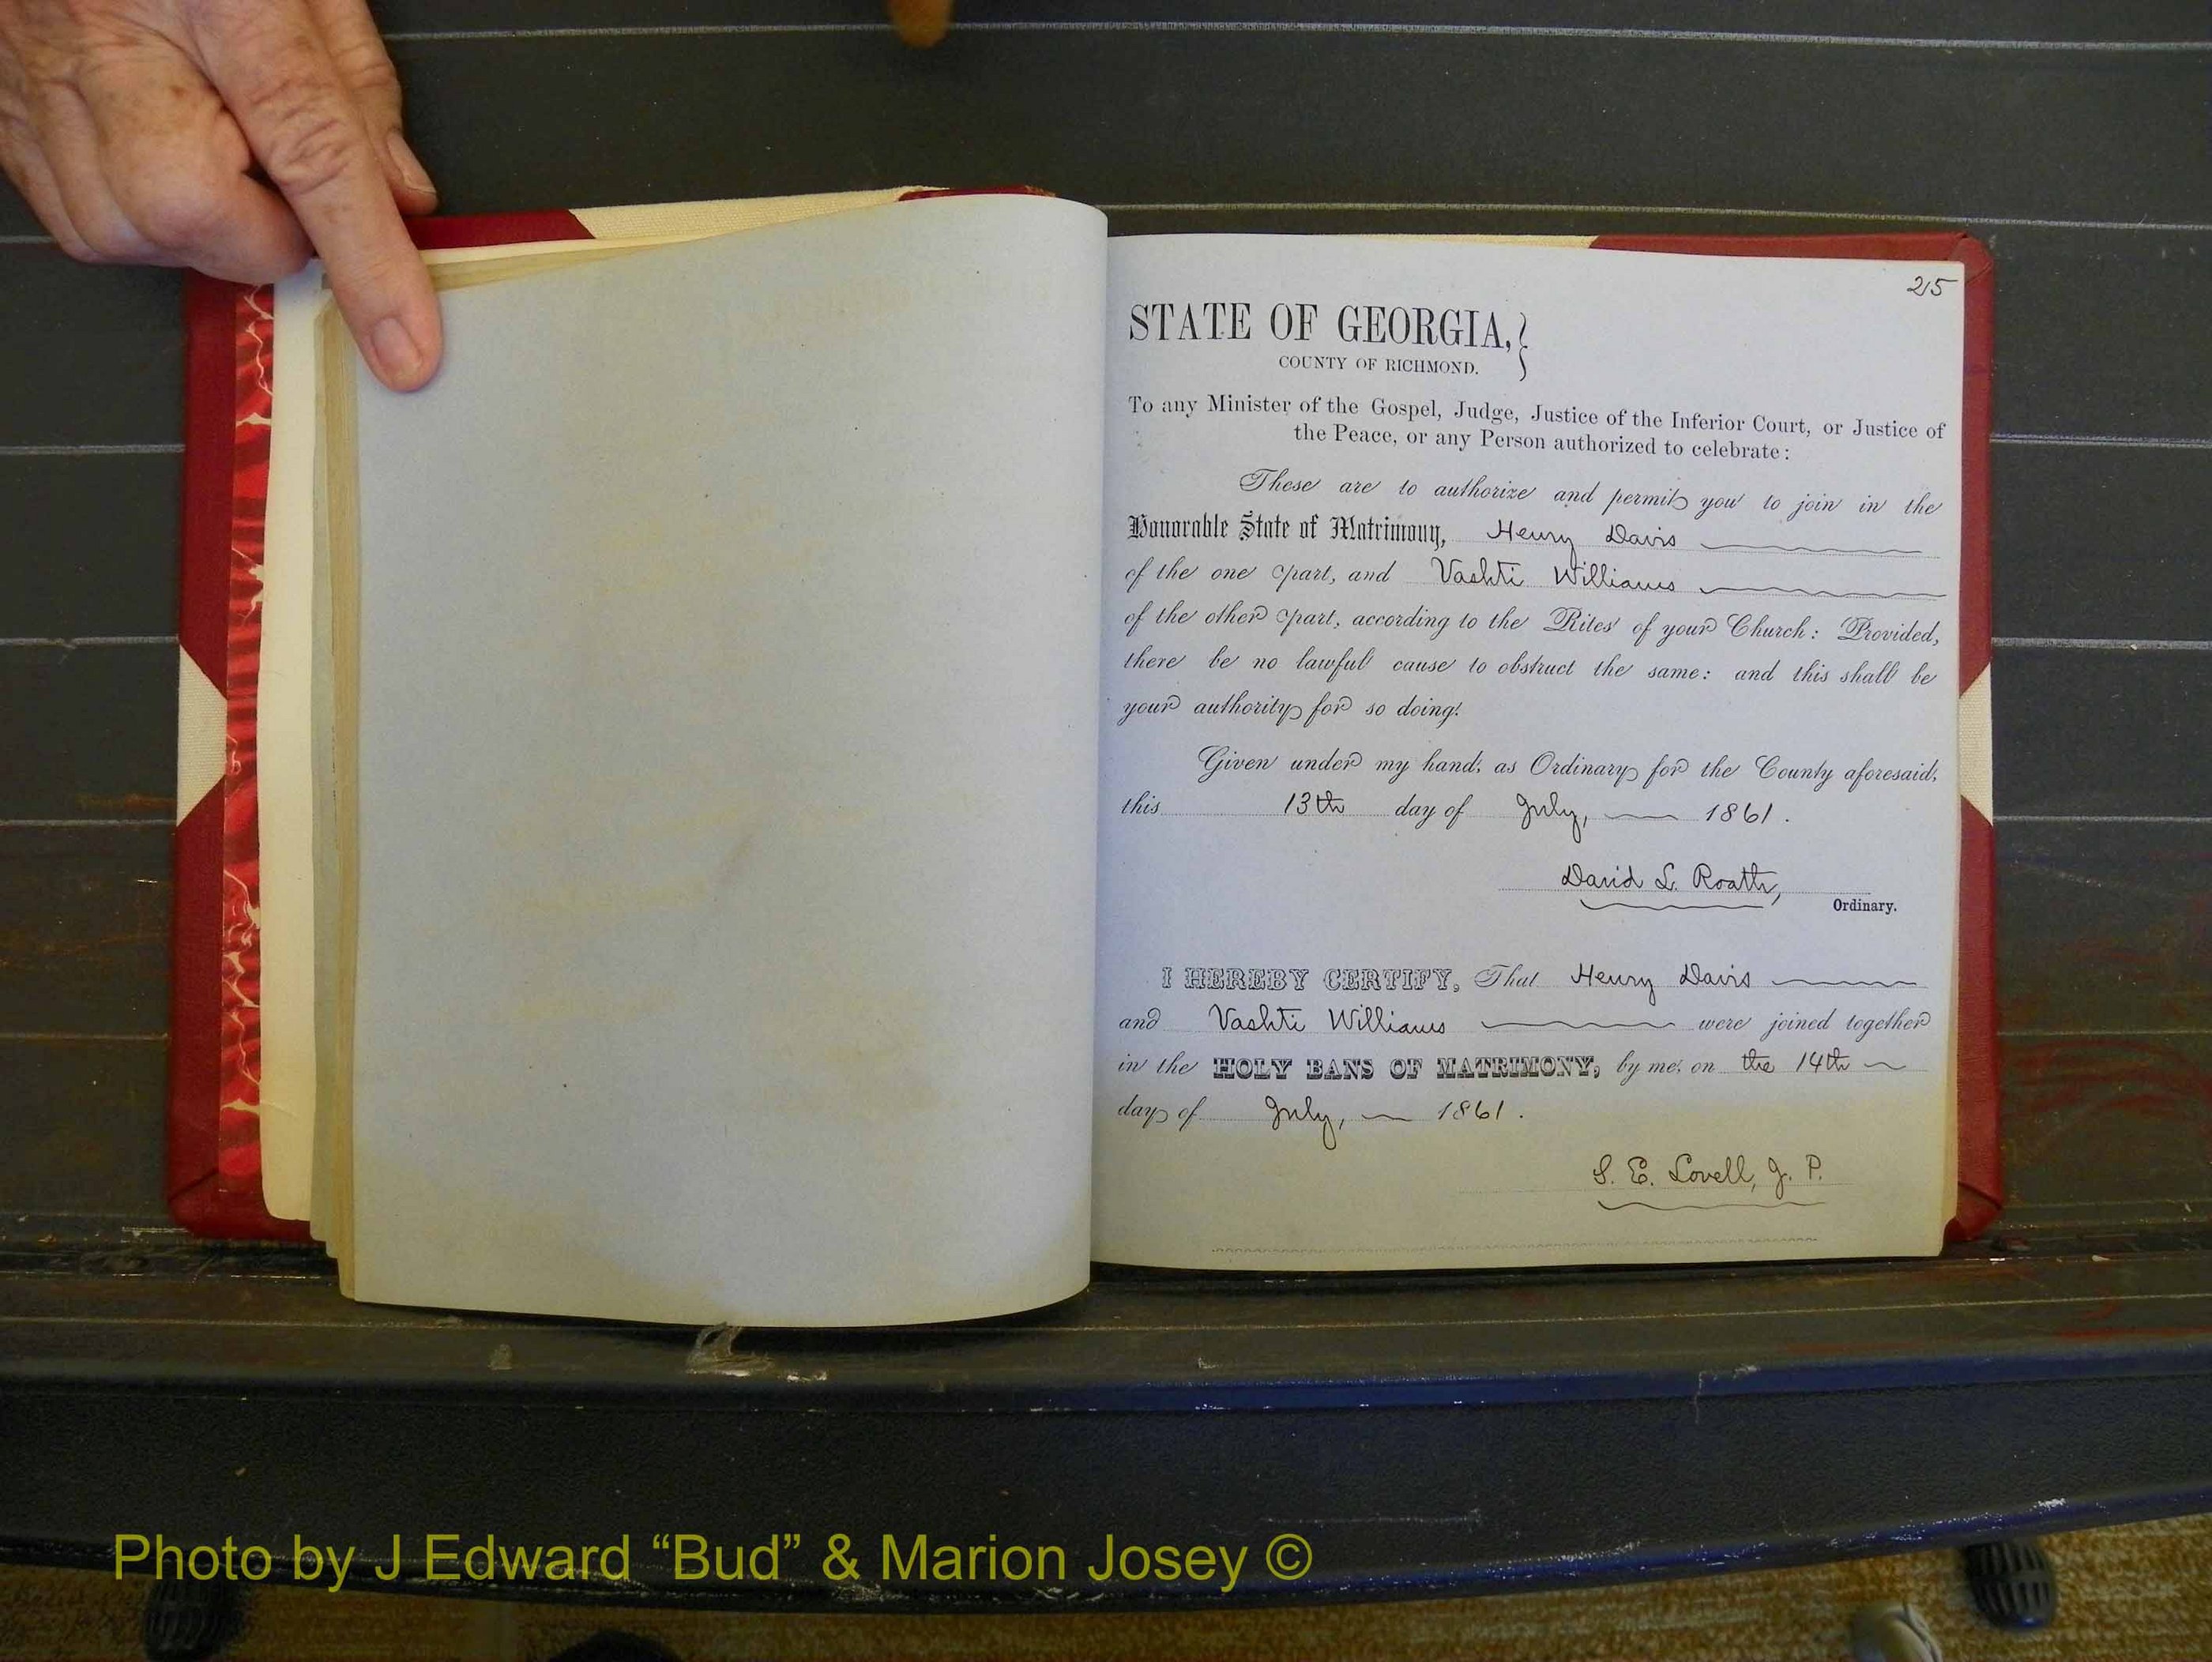 215
STATE OF GEORGIA,
COUNTY OF RICHMOND.
To any Minister of the Gospel, Judge, Justice of the Inferior Court, or Justice of
the Peace, or any Person authorized to celebrate:
These are to authorize and permit you to join in the
Honorable State of Matrimony, Henry Davis
of the one part, and Vashti Williams
of the other part, according to the Rites of your Church: Provided,
there be no lawful cause to obstruct the same: and this shall be
your authority for so doing.
Given under my hand, as Ordinary for the County aforesaid,
this 13th day of July, 1861.
David L. Roath,
Ordinary.
I HEREBY CERTIFY, That Henry Davis
and Vashti Williams were joined together
in the HOLY BANS OF MATRIMONY, by me, on the 14th
day of July, 1861.
S. E. Lovell, J. P.
Photo by J Edward “Bud” & Marion Josey ©